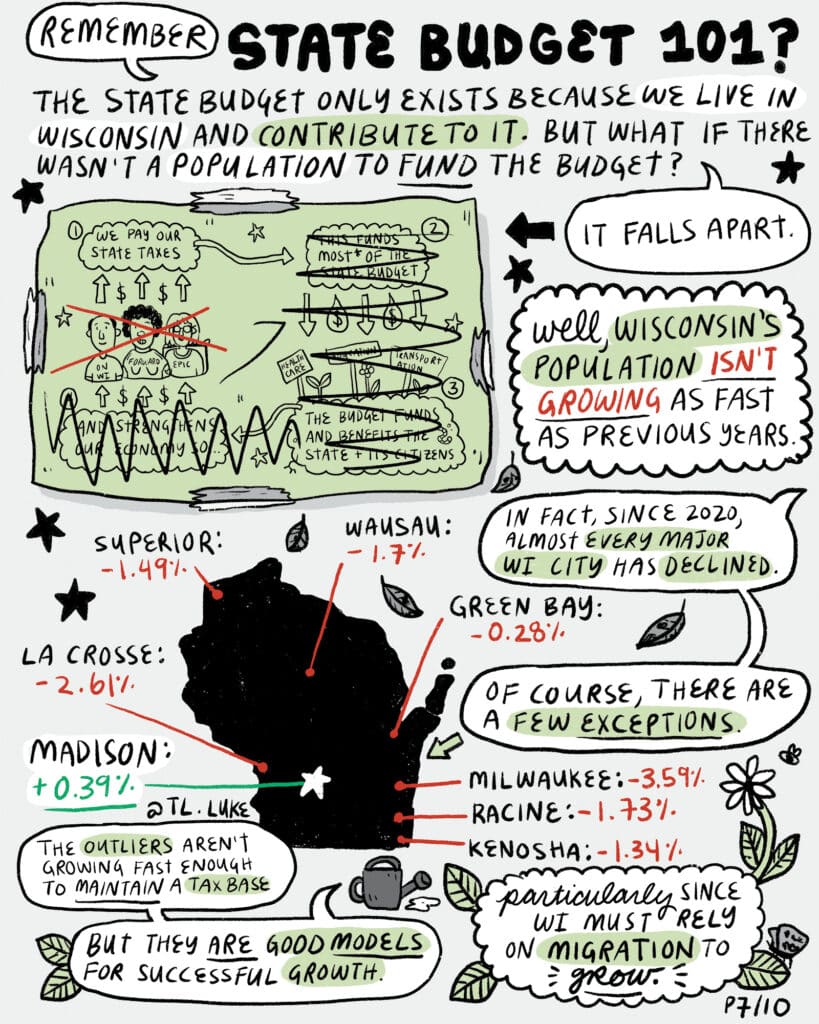 REMEMBER
STATE BUDGET 101?
THE STATE BUDGET ONLY EXISTS BECAUSE WE LIVE IN
WISCONSIN AND CONTRIBUTE TO IT. BUT WHAT IF THERE
WASN'T A POPULATION TO FUND THE BUDGET?
IT FALLS APART.
1
WE PAY OUR
STATE TAXES
2
THIS FUNDS
MOST* OF THE
STATE BUDGET
$ $
$ $
ON
WI
FORWARD
EPIC
HEALTH
CARE
EDUCATION
TRANSPORT
ATION
$ $
3
THE BUDGET FUNDS
AND BENEFITS THE
STATE + ITS CITIZENS
AND STRENGTHENS
OUR ECONOMY SO...
well, WISCONSIN'S
POPULATION ISN'T
GROWING AS FAST
AS PREVIOUS YEARS.
IN FACT, SINCE 2020,
ALMOST EVERY MAJOR
WI CITY HAS DECLINED.
OF COURSE, THERE ARE
A FEW EXCEPTIONS.
SUPERIOR:
-1.49%
WAUSAU:
-1.7%
GREEN BAY:
-0.28%
LA CROSSE:
-2.61%
MADISON:
+0.39%
MILWAUKEE: -3.59%
RACINE: -1.73%
KENOSHA: -1.34%
@TL. LUKE
THE OUTLIERS AREN'T
GROWING FAST ENOUGH
TO MAINTAIN A TAX BASE
BUT THEY ARE GOOD MODELS
FOR SUCCESSFUL GROWTH.
particularly SINCE
WI MUST RELY
ON MIGRATION TO
grow.
P7/10